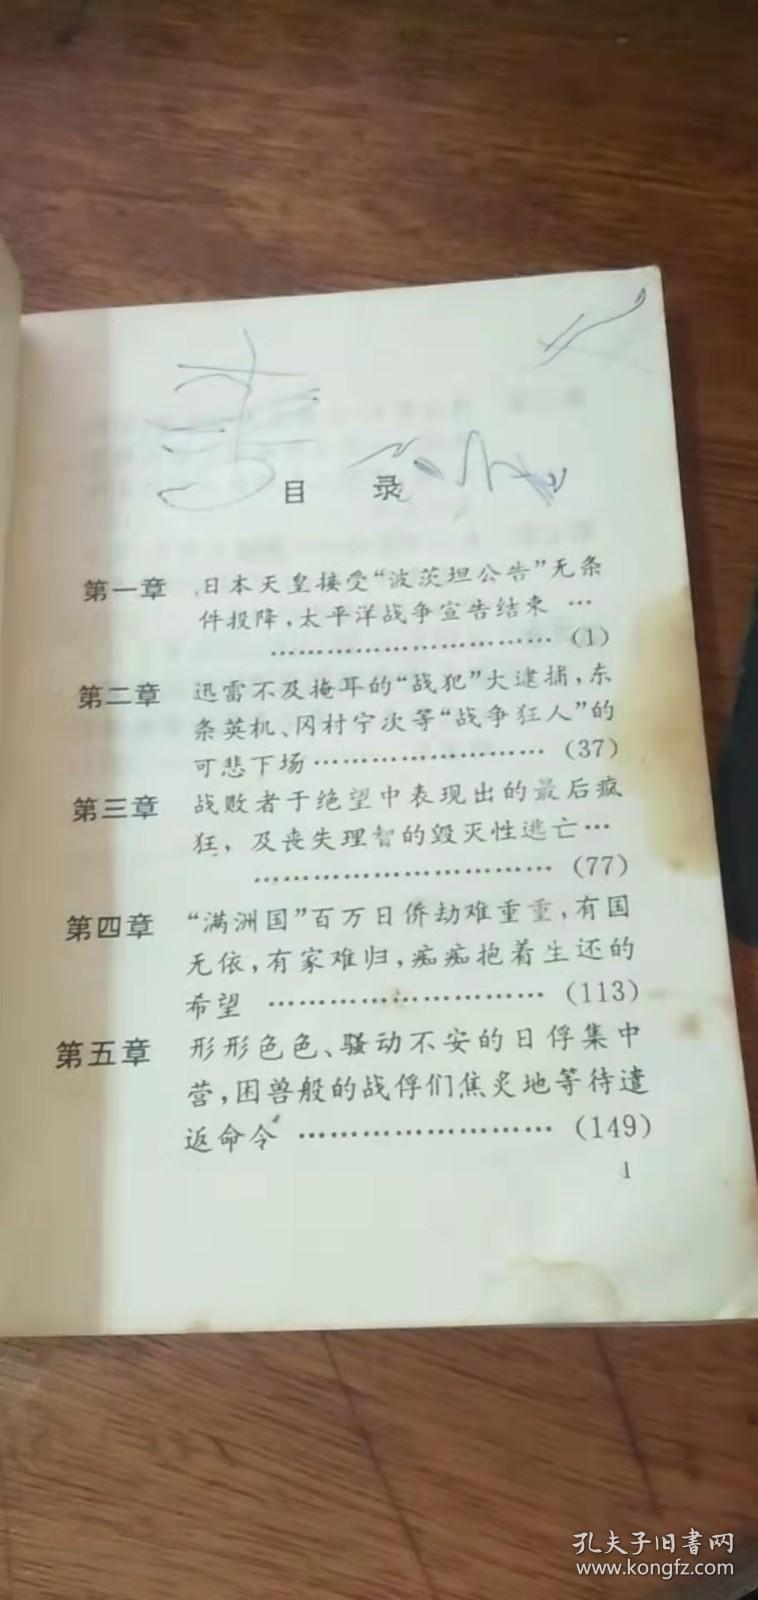 目 录
第一章 日本天皇接受“波茨坦公告”无条
件投降，太平洋战争宣告结束 …
………………………… (1)
第二章 迅雷不及掩耳的“战犯”大逮捕，东
条英机、冈村宁次等“战争狂人”的
可悲下场…………………… (37)
第三章 战败者于绝望中表现出的最后疯
狂，及丧失理智的毁灭性逃亡…
…………………………… (77)
第四章 “满洲国”百万日侨劫难重重，有国
无依，有家难归，痴痴抱着生还的
希望 ……………………… (113)
第五章 形形色色、骚动不安的日俘集中
营，困兽般的战俘们焦炙地等待遣
返命令 …………………… (149)
1
孔夫子旧書网
www.kongfz.com